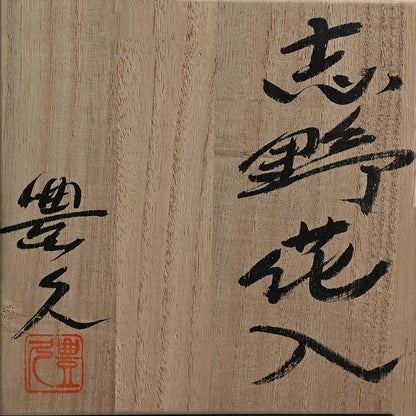 志野花入
豊久